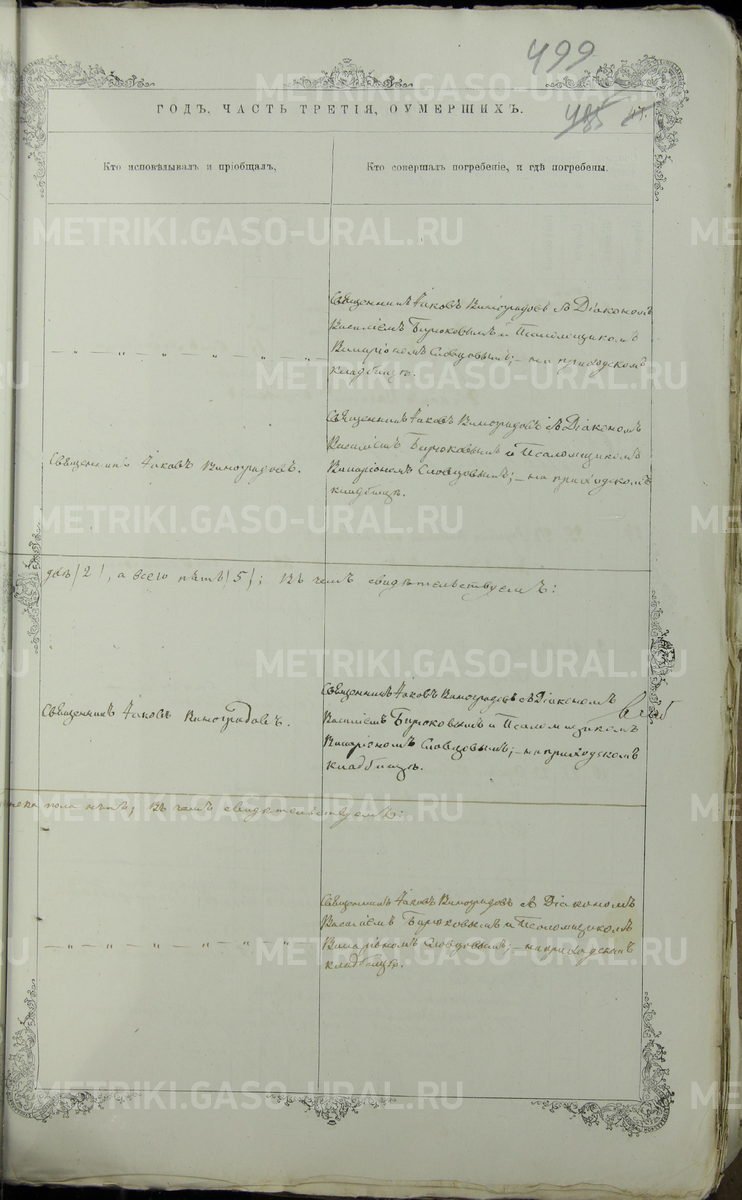 499
485
47.
ГОДЪ, ЧАСТЬ ТРЕТІЯ, ОУМЕРШИХЪ.
Кто исповѣдывалъ и пріобщалъ,
Кто совершалъ погребеніе, и гдѣ погребены.
Священникъ Іаковъ Виноградовъ съ Діакономъ
Василіемъ Бирюковымъ и Псаломщикомъ
— „ — „ — „ — „ — „ —
Иларіономъ Словцовымъ; – на приходскомъ
кладбищѣ.
Священникъ Іаковъ Виноградовъ съ Діакономъ
Василіемъ Бирюковымъ и Псаломщикомъ
Священникъ Іаковъ Виноградовъ.
Иларіономъ Словцовымъ; – на приходскомъ
кладбищѣ.
двѣ /2/, а всего пять /5/; въ чемъ свидѣтельствуемъ:
Священникъ Іаковъ Виноградовъ съ Діакономъ
Священникъ Іаковъ Виноградовъ.
Василіемъ Бирюковымъ и Псаломщикомъ
Иларіономъ Словцовымъ; – на приходскомъ
кладбищѣ.
пола нѣтъ; въ чемъ свидѣтельствуемъ:
Священникъ Іаковъ Виноградовъ съ Діакономъ
Василіемъ Бирюковымъ и Псаломщикомъ
— „ — „ — „ — „ — „ — „
Иларіономъ Словцовымъ; – на приходскомъ
кладбищѣ.
METRIKI.GASO-URAL.RU